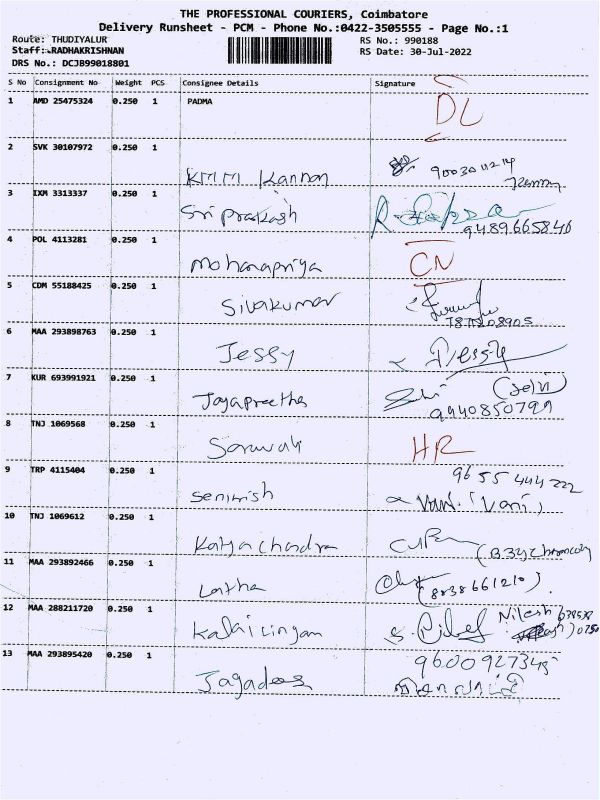 THE PROFESSIONAL COURIERS, Coimbatore
Delivery Runsheet - PCM - Phone No.:0422-3505555 - Page No.:1
Route: THUDIYALUR RS No.: 990188
Staff:-RADHAKRISHNAN RS Date: 30-Jul-2022
DRS No.: DCJB99018801
S No Consignment No Weight PCS Consignee Details Signature
1 AMD 25475324 0.250 1 PADMA DL
2 SVK 30107972 0.250 1
KMM Kannan
3 IXM 3313337 0.250 1
Sri prakash 9489665846
4 POL 4113281 0.250 1
Mohanapriya CN
5 CDM 55188425 0.250 1
Sivakumar
6 MAA 293898763 0.250 1
Jessy Dessy
7 KUR 693991921 0.250 1 (Selvi)
Jayapreetha 9940850799
8 TNJ 1069568 0.250 1
HR
9 TRP 4115404 0.250 1 9655444222
(Vani)
10 TNJ 1069612 0.250 1
11 MAA 293892466 0.250 1
Latha (8838661210).
12 MAA 288211720 0.250 1 Nilesh
Kalailingam
13 MAA 293895420 0.250 1 9600927345